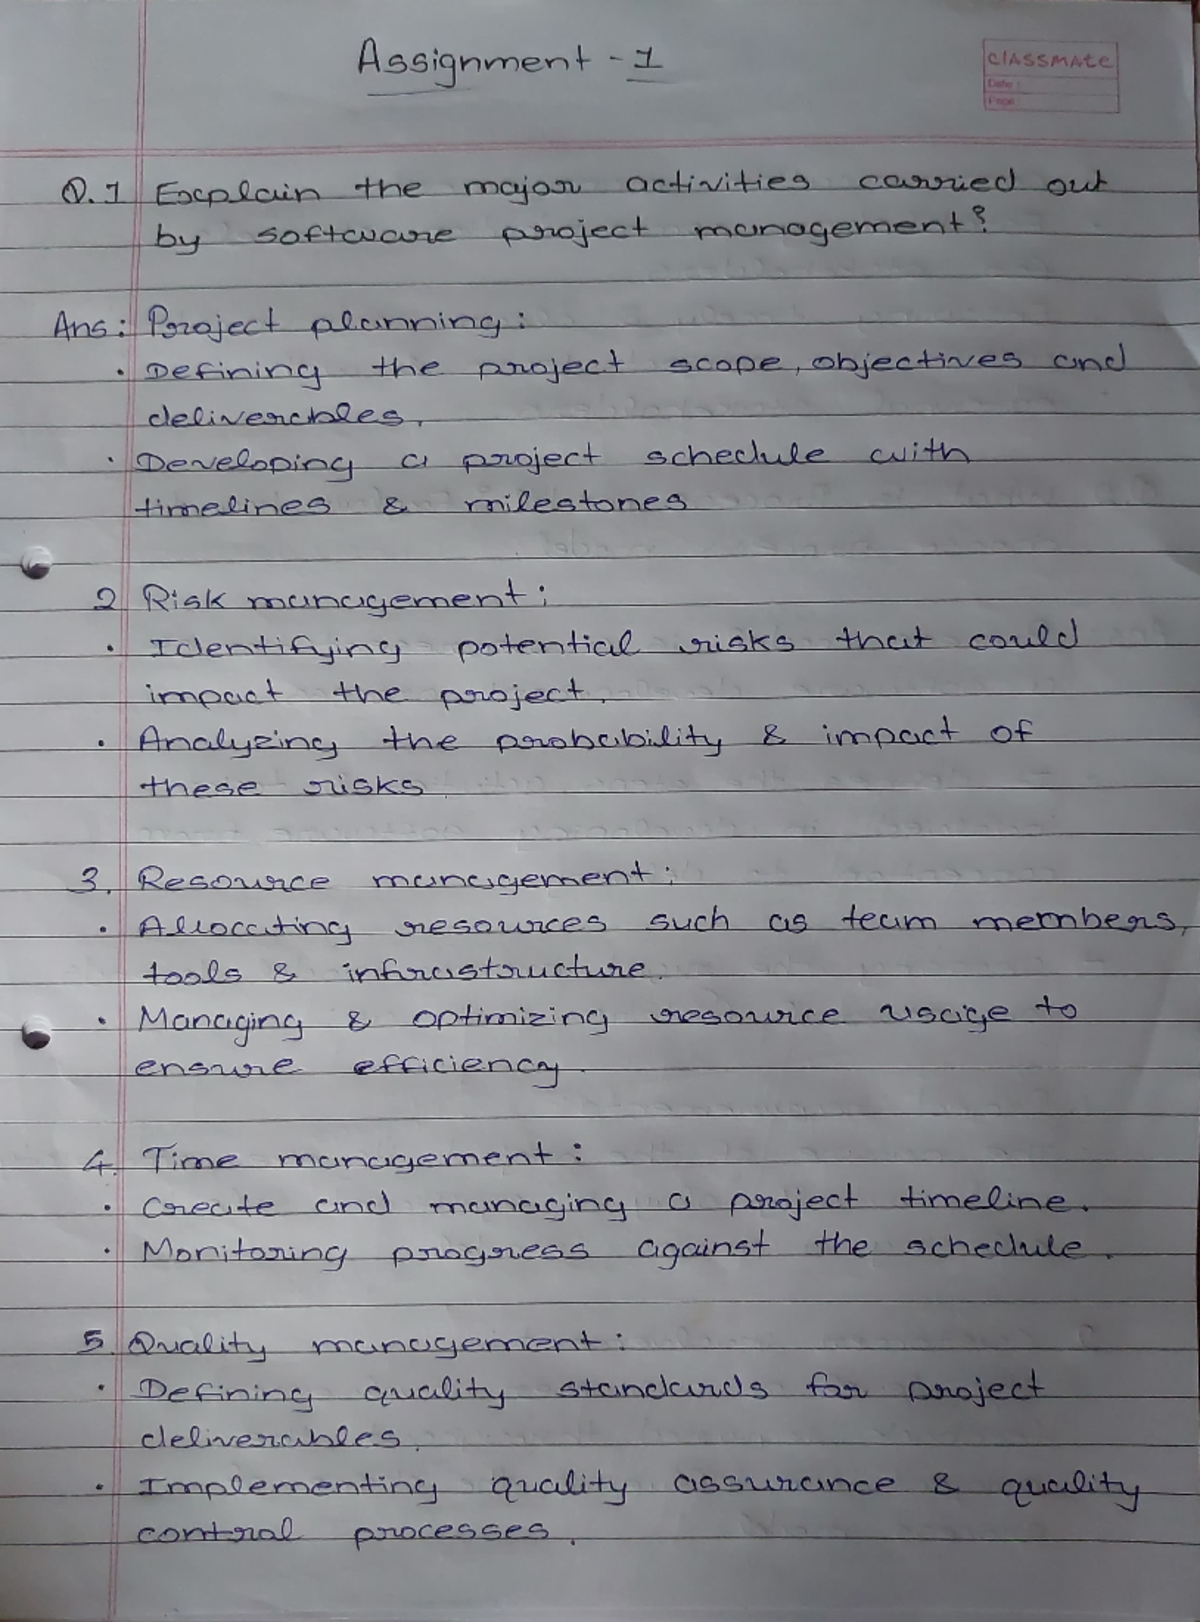 Assignment - 1
classmate
Date :
Page :
Q.1 Explain the major activities carried out
by software project management?
Ans: Project planning:
· Defining the project scope, objectives and
deliverables.
· Developing a project schedule with
timelines & milestones
2 Risk management:
· Identifying potential risks that could
impact the project.
· Analyzing the probability & impact of
these risks.
3. Resource management:
· Allocating resources such as team members,
tools & infrastructure.
· Managing & optimizing resource usage to
ensure efficiency.
4. Time management:
· Create and managing a project timeline.
· Monitoring progress against the schedule.
5. Quality management:
· Defining quality standards for project
deliverables.
· Implementing quality assurance & quality
control processes.